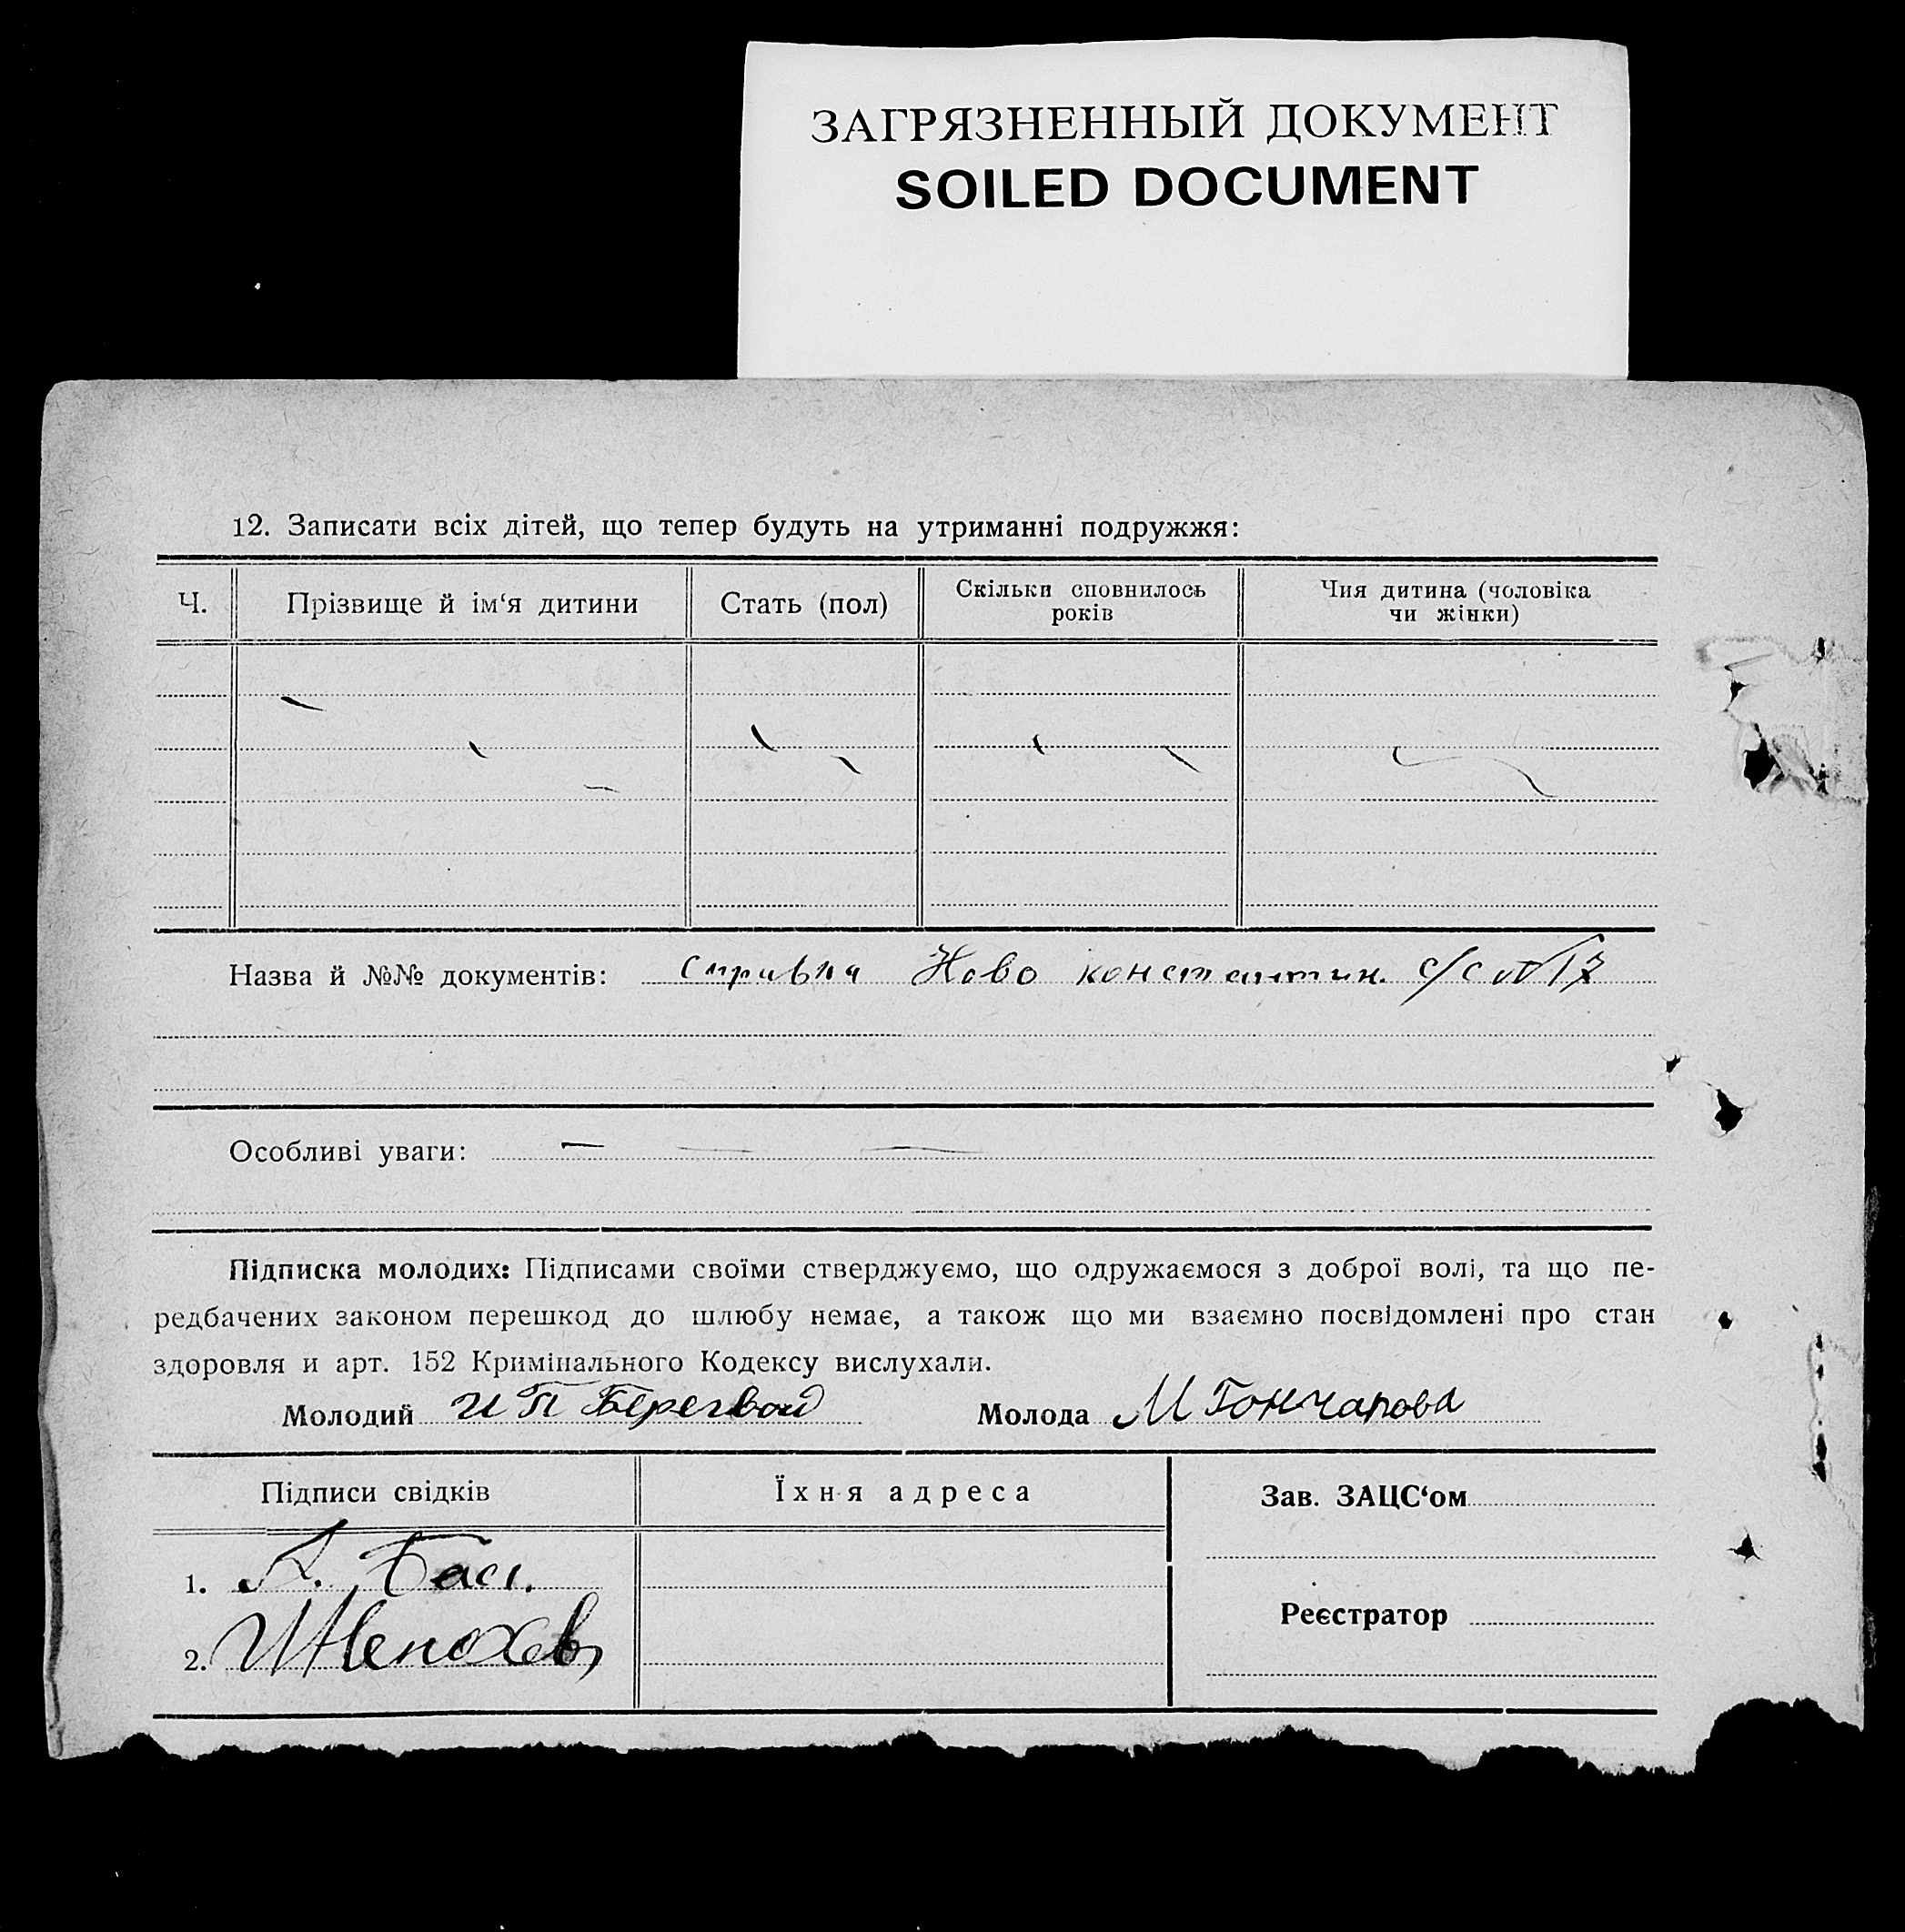 ЗАГРЯЗНЕННЫЙ ДОКУМЕНТ
SOILED DOCUMENT
12. Записати всіх дітей, що тепер будуть на утриманні подружжя:
Ч.
Прізвище й ім‘я дитини
Стать (пол)
Скільки сповнилось
років
Чия дитина (чоловіка
чи жінки)
Назва й №№ документів: справка Ново константин. с/с №
Особливі уваги: — — —
Підписка молодих: Підписами своїми стверджуємо, що одружаємося з доброї волі, та що пе-
редбачених законом перешкод до шлюбу немає, а також що ми взаємно посвідомлені про стан
здоровля и арт. 152 Кримінального Кодексу вислухали.
Молодий И П Береговой Молода М Гончарова
Підписи свідків
Їхня адреса
Зав. ЗАЦС‘ом
1.
2.
Реєстратор